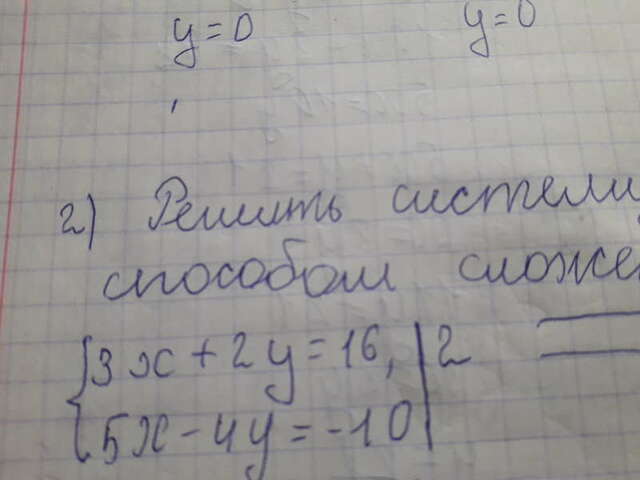 y=0 y=0
2) Решить систему
способом сложе
{3x+2y=16,|2
{5x-4y=-10|